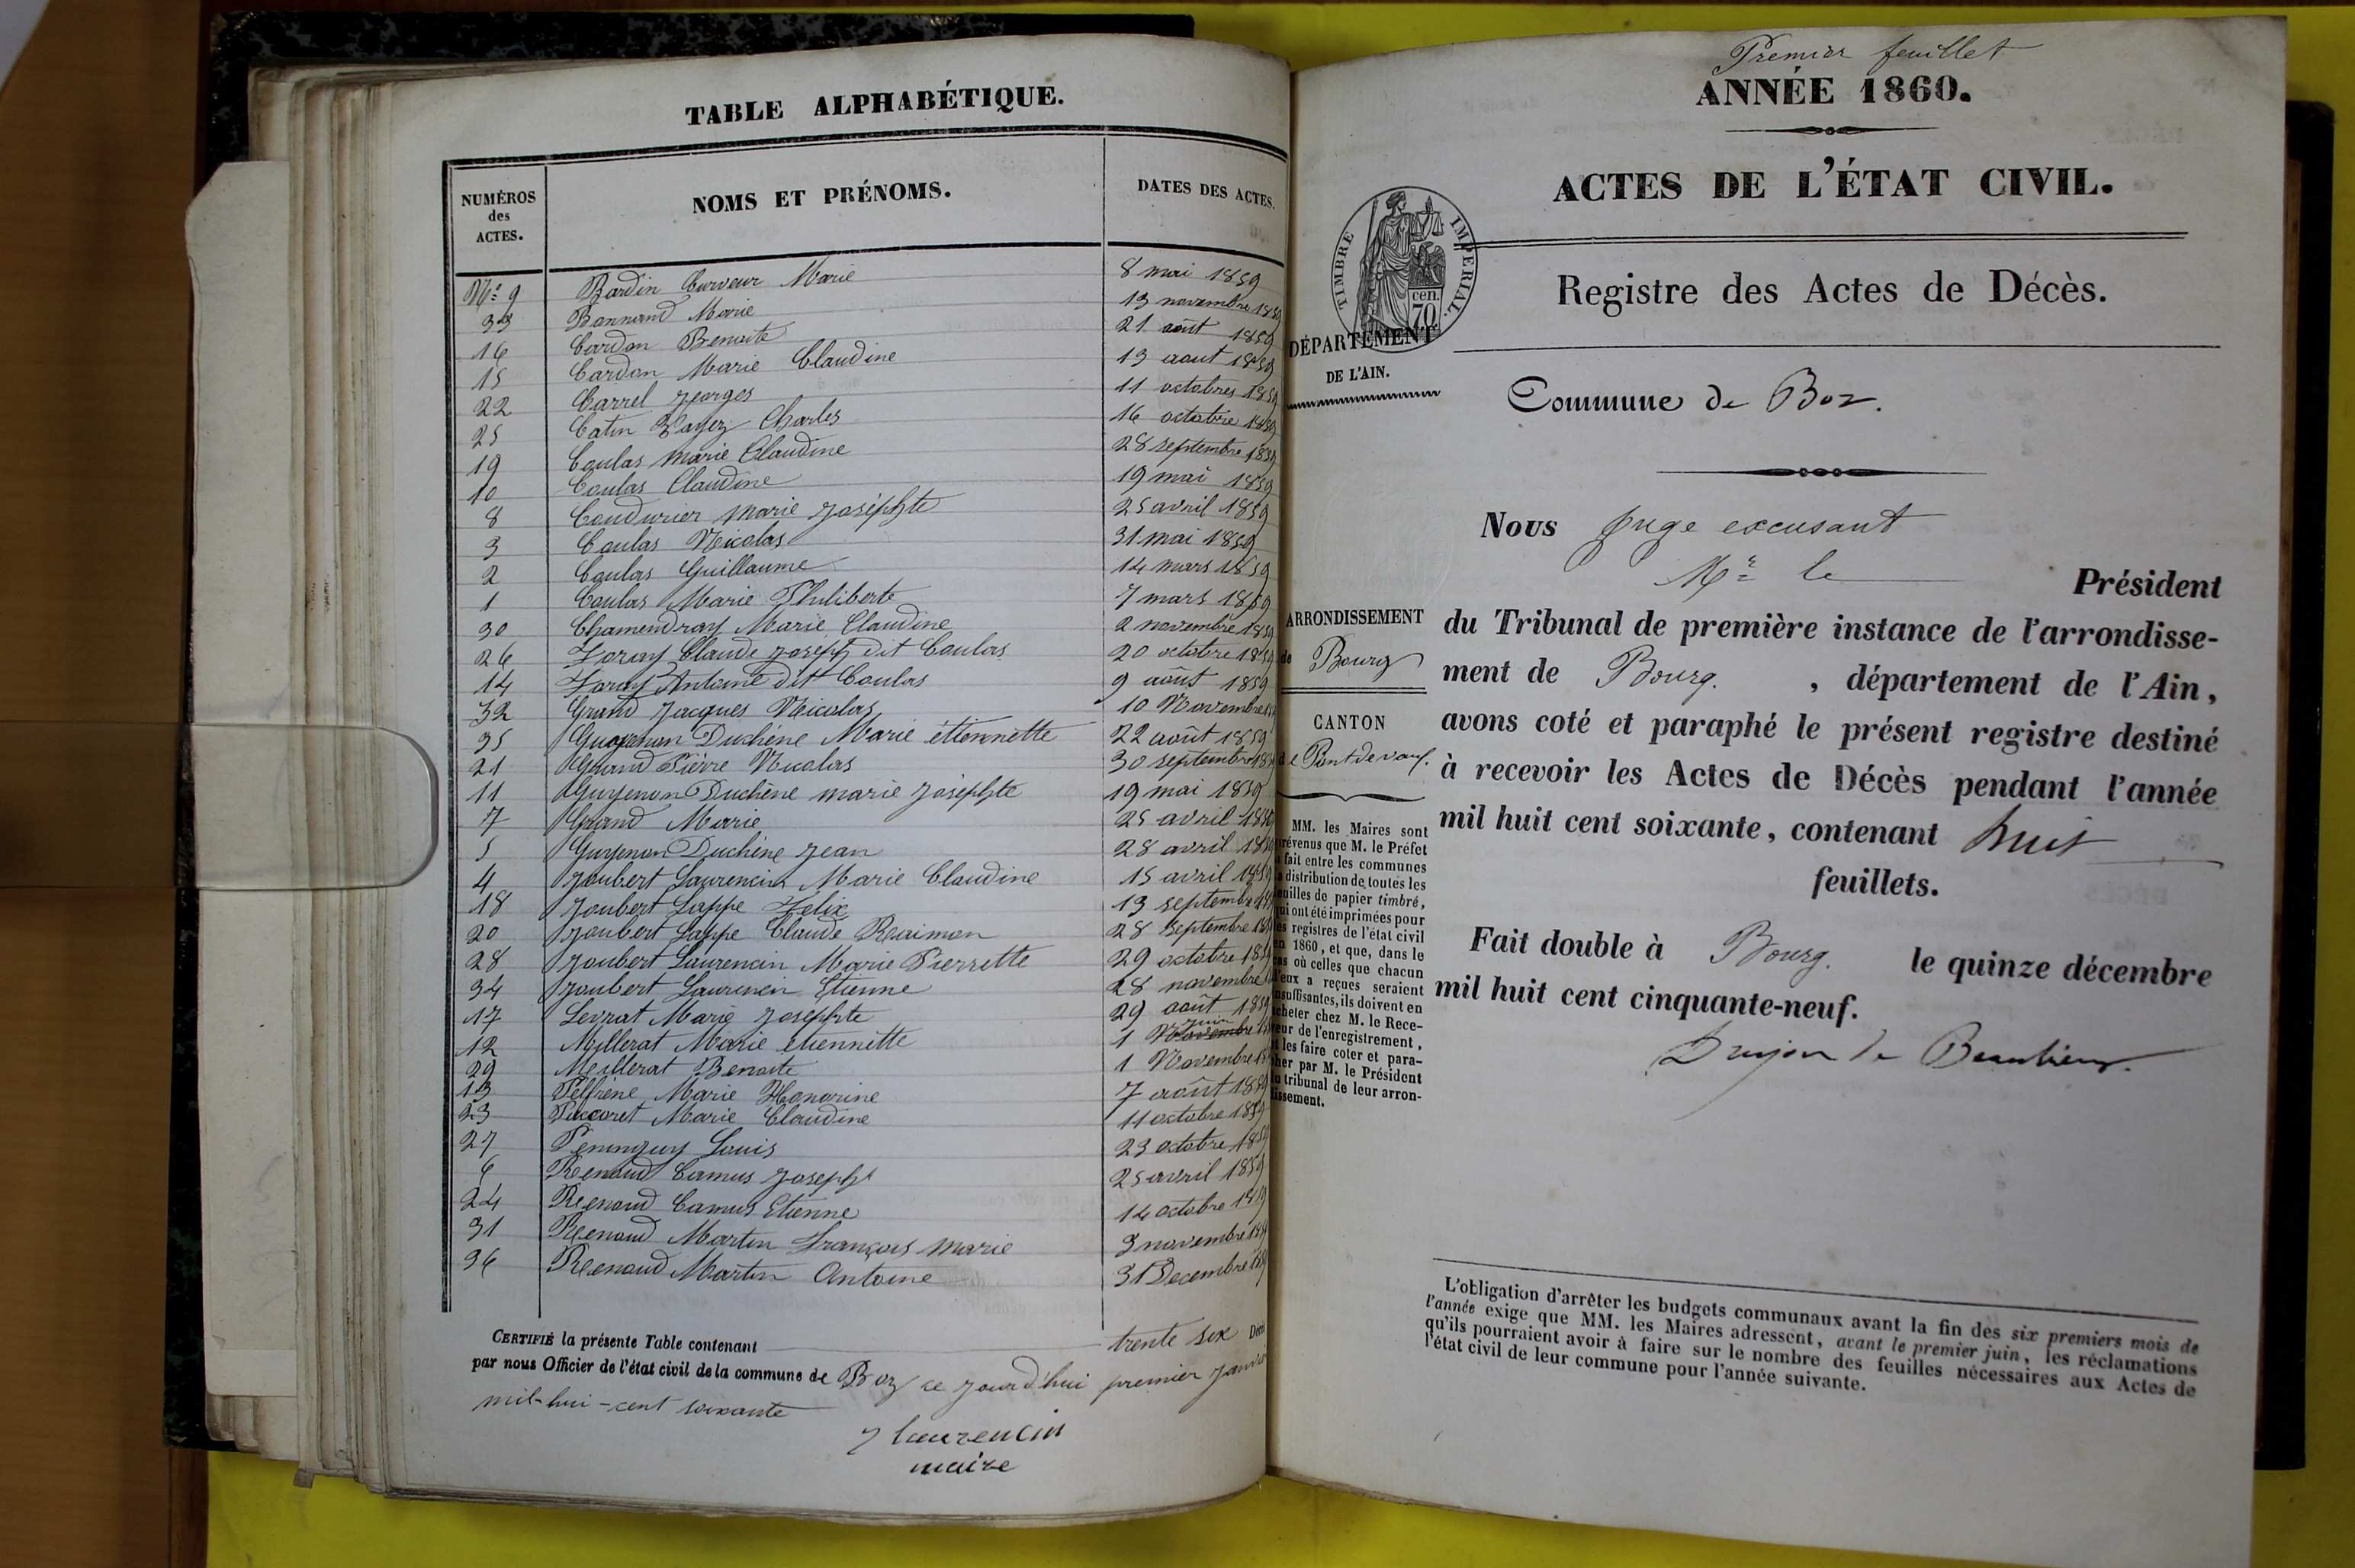 TABLE ALPHABÉTIQUE.
NUMÉROS
des
ACTES.
NOMS ET PRÉNOMS.
DATES DES ACTES.
N° 9 Bardin Curveur Marie 8 mai 1859
33 Bonnand Marie 13 novembre 1859
16 Cardon Benoite 21 août 1859
15 Cardon Marie Claudine 13 aout 1859
22 Carrel Georges 11 octobres 1859
25 Catin Charles 16 octobre 1859
19 Coulas Marie Claudine 28 septembre 1859
10 Coulas Claudine 19 mai 1859
8 Coudurier marie Joséphte 25 avril 1859
3 Coulas Nicolas 31 mai 1859
2 Coulas Guillaume 14 mars 1859
1 Coulas Marie Philiberte 7 mars 1859
30 Chamendray Marie Claudine 2 novembre 1859
26 Foray Claude Joseph dit Coulas 20 octobre 1859
14 Foray Antoine dit Coulas 9 août 1859
32 Grand Jacques Nicolas 10 Novembre
35 Guyenon Duchêne Marie étiennette 22 août 1859
21 Grand Pierre Nicolas 30 septembre
11 Guyenon Duchêne marie Joséphte 19 mai 1859
7 Grand Marie 25 avril 1859
5 Guyenon Duchêne Jean 28 avril 1859
4 Joubert Laurencin Marie Claudine 15 avril 1859
18 Joubert Lappe Felix 13 septembre
20 Joubert Lappe Claude Reaimon 28 septembre
28 Joubert Laurencin Marie Pierrette 29 octobre 1859
34 Joubert Laurencin Etienne 28 novembre
17 Levrat Marie Josephte 29 août 1859
12 Millerat Marie etiennette 1 Novembre juin
29 Meillerat Benoite 1 Novembre
13 Pelfrène Marie Honorine 7 août 1859
23 Paccoret Marie Claudine 11 octobre 1859
27 Peninguy Louis 23 octobre 1859
6 Renaud Camus Joseph 25 avril 1859
24 Renaud Camus Etienne 14 octobre 1859
31 Renaud Martin François marie 3 novembre 1859
36 Renaud Martin Antoine 31 Decembre 1859
CERTIFIÉ la présente Table contenant trente six
par nous Officier de l'état civil de la commune de Boz ce jourd'hui premier Janvier
mil-hui-cent soixante
J Laurencin
maire
Premier feuillet
ANNÉE 1860.
ACTES DE L'ÉTAT CIVIL.
TIMBRE IMPÉRIAL.
70 cen.
DÉPARTEMENT
DE L'AIN.
Registre des Actes de Décès.
Commune de Boz.
ARRONDISSEMENT
de Bourg
CANTON
de Pont de vaux.
MM. les Maires sont
prévenus que M. le Préfet
a fait entre les communes
la distribution de toutes les
feuilles de papier timbré,
qui ont été imprimées pour
les registres de l'état civil
en 1860, et que, dans le
cas où celles que chacun
d'eux a reçues seraient
insuffisantes, ils doivent en
acheter chez M. le Rece-
veur de l'enregistrement,
et les faire coter et para-
pher par M. le Président
du tribunal de leur arron-
dissement.
Nous Juge excusant
Mr le Président
du Tribunal de première instance de l'arrondisse-
ment de Bourg. , département de l'Ain,
avons coté et paraphé le présent registre destiné
à recevoir les Actes de Décès pendant l'année
mil huit cent soixante, contenant huit
feuillets.
Fait double à Bourg. le quinze décembre
mil huit cent cinquante-neuf.
Drujon de Beaulieu
L'obligation d'arrêter les budgets communaux avant la fin des six premiers mois de
l'année exige que MM. les Maires adressent, avant le premier juin, les réclamations
qu'ils pourraient avoir à faire sur le nombre des feuilles nécessaires aux Actes de
l'état civil de leur commune pour l'année suivante.